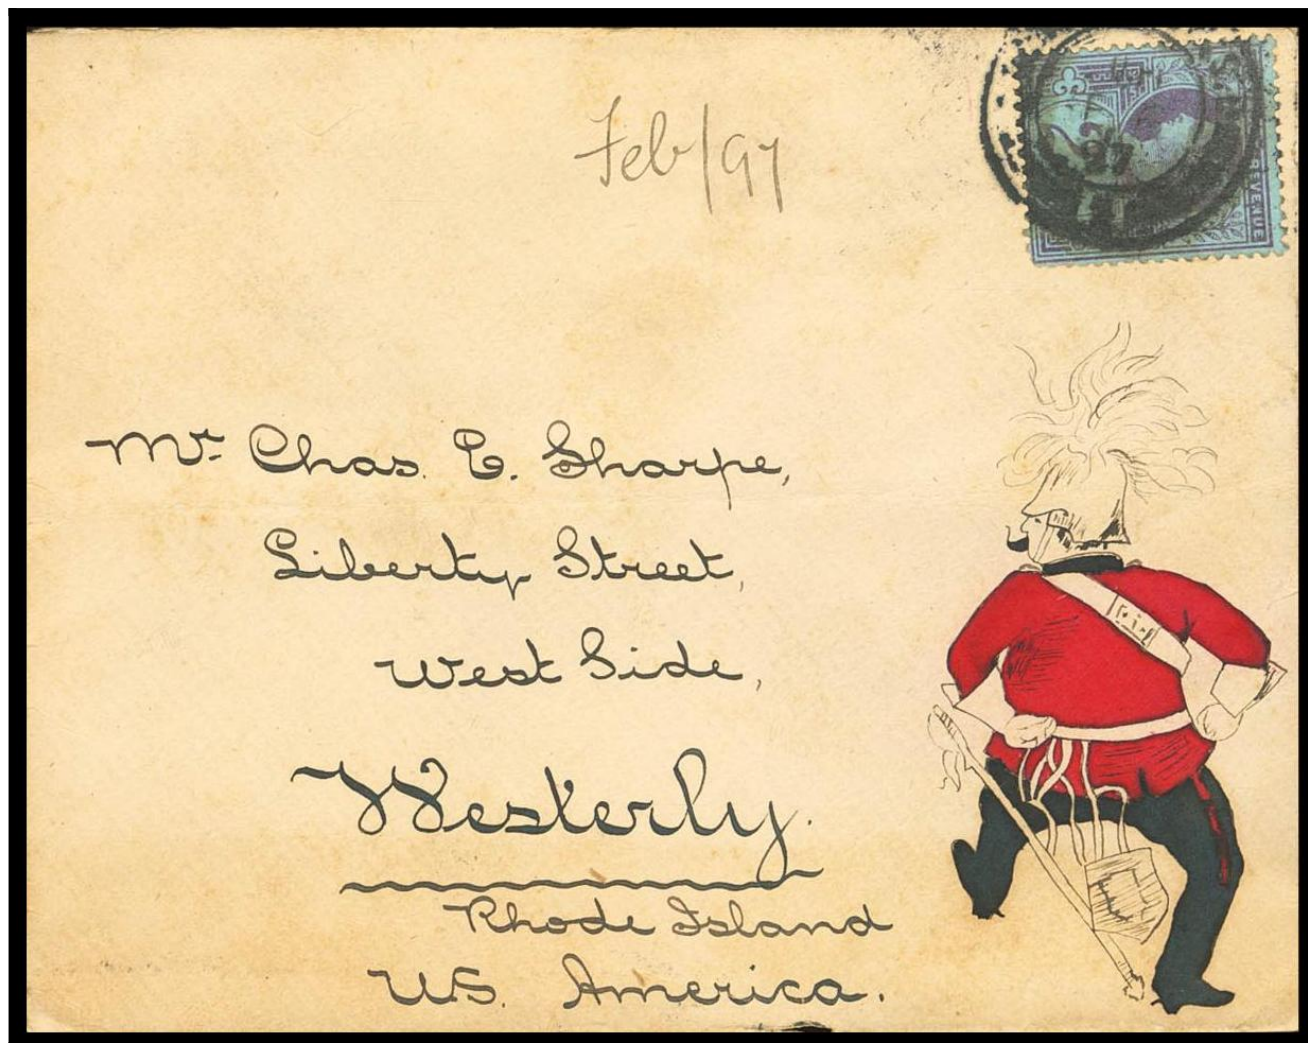 Feb/97
REVENUE
Mr. Chas. E. Sharpe,
Liberty Street,
West Side,
Westerly.
Rhode Island
U.S. America.